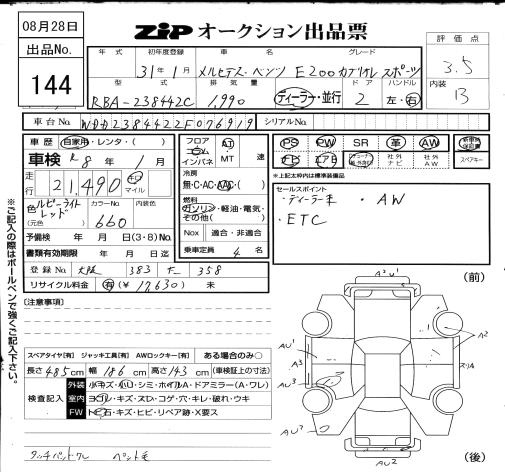 08月28日
出品No.
144
ZIP オークション出品票
年式 初年度登録 車名 グレード
31年1月 メルセデス・ベンツ E200カブリオレ スポーツ
型式 排気量 ドア ハンドル
RBA-238442C 1,990 ディーラー・並行 2 左・右
評価点
3.5
内装
B
車台No. WDD2384422F076919 シリアルNo.
車歴 自家用・レンタ・( )
車検 R8年 1月
走行 21,490 キロ マイル
色(元色) ルビーライトレッド カラーNo. 660 内装色
予備検 年 月 日(3・8)No.
書類有効期限 年 月 日迄
登録No. 大阪 383 358
リサイクル料金 有(¥17,630) 未
フロア コラム インパネ AT MT 速
冷房 無・C・AC・AAC・( )
燃料 ガソリン・軽油・電気・その他( )
Nox 適合・非適合
乗車定員 4名
PS PW SR 革 AW
ナビ エアB 社外ナビ 社外AW スペアキー
*上記太枠内は標準装備品
セールスポイント
・ディーラー車 ・AW
・ETC
※ご記入の際はボールペンで強くご記入下さい。
[注意事項]
スペアタイヤ[有] ジャッキ工具[有] AWロックキー[有] ある場合のみ○
長さ485cm 幅186cm 高さ143cm (車検証上の寸法)
検査記入
外装 小キズ・小U・シミ・ホイルA・ドアミラー(A・ワレ)
室内 ヨゴレ・キズ・スレ・コゲ・穴・キレ・破れ・ウキ
FW トビ石・キズ・ヒビ・リペア跡・X要ス
(前)
A2 U1
AU1
A3
AU3
AU2
A2
スリA
AU2
(後)